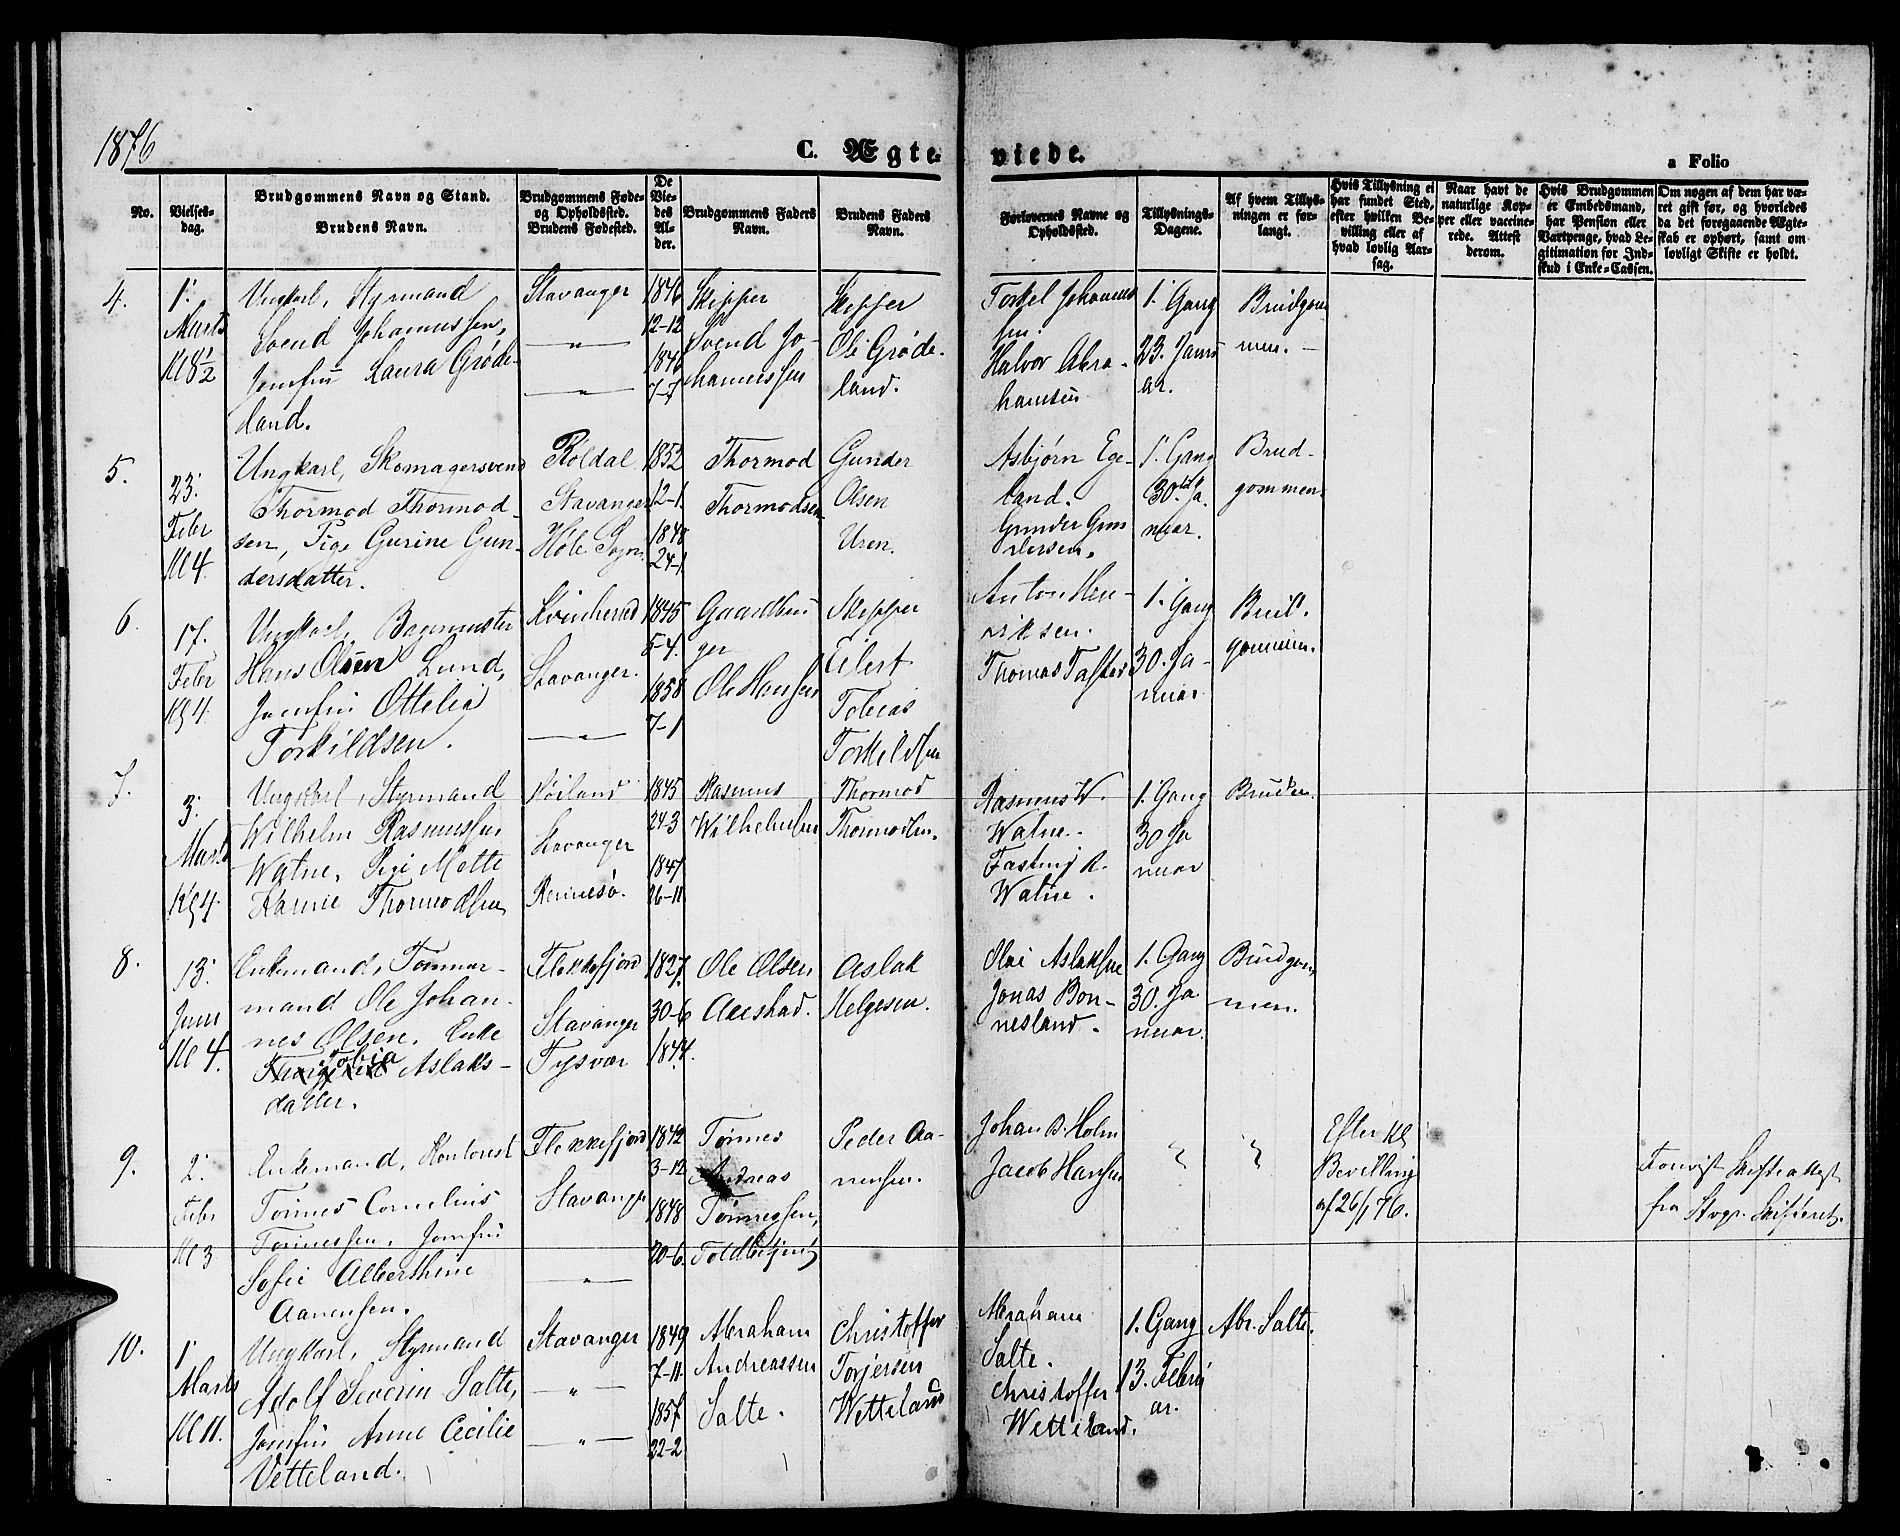 1876
C. Ægte-
viede.
a Folio
No.
Vielses-
dag.
Brudgommens Navn og Stand.
Brudens Navn.
Brudgommens Føde-
og Opholdssted.
Brudens Fødested.
De
Vie-
des
Al-
der.
Brudgommens Faders
Navn.
Brudens Faders
Navn.
Forlovernes Navne og
Opholdssted.
Tillysnings-
Dagene.
Af hvem Tillys-
ningen er for-
langt.
Hvis Tillysning ei
har fundet Sted,
efter hvilken Be-
villing eller af
hvad lovlig Aar-
sag.
Naar havt de
naturlige Kop-
per eller vaccine-
rede. Attest
derom.
Hvis Brudgommen
er Embedsmand,
har Pension eller
Vartpenge, hvad Le-
gitimation for Ind-
skud i Enke-Cassen.
Om nogen af dem har væ-
ret gift før, og hvorledes
da det foregaaende Ægte-
skab er ophørt, samt om
lovligt Skifte er holdt.
4.
1.
Marts
Kl 8 1/2
Ungkarl, Styrmand
Svend Johannessen,
Jomfru Laura Grøde-
land.
Stavanger
— " —
— " —
1846
12-12
1846
7-7
Skipper
Svend Jo-
hannessen
Skipper
Ole Grøde-
land.
Torkel Johannes
sen.
Halvor Abra-
hamsen
1. Gang
23. Janu
ar.
Brudgom
men. —
5.
23.
Febr
Kl 4.
Ungkarl, Skomagersvend
Thormod Thormod-
sen, Pige Gurine Gun-
dersdatter.
Røldal
Stavanger
Høle Sogn
1852
12-1.
1848
24-1.
Thormod
Thormodsen
Gunder
Olsen
Uren.
Asbjørn Ege-
land.
Gunder Gun
dersen.
1. Gang
30. Ja
nuar.
Brud-
gommen.
6.
17.
Febr
Kl 4.
Ungkarl, Bagermester
Hans Olsen Lund,
Jomfru Ottelia
Torkildsen.
Kvinherred
Stavanger.
— " —
1845
5-4.
1858
7-1
Gaardbru
ger
Ole Hansen
Skipper
Eilert
Tobias
Torkildsen
Anton Hen-
riksen.
Thomas Tasted
1. Gang
30. Ja-
nuar.
Brud-
gommen.
7.
3.
Marts
Kl 4.
Ungkarl, Styrmand
Wilhelm Rasmussen
Watne, Pige Mette
Hanne Thormodsen
Høiland
Stavanger
Rennesø.
1845
24-3
1847
26-11
Rasmus
Wilhelmsen
Thormod
Thormodsen.
Rasmus W.
Watne.
Fasting R.
Watne.
1. Gang
30 Ja
nuar
Bruden.
8.
13.
Juni
Kl 4.
Enkemand, Tømmer-
mand Ole Johan-
nes Olsen, Enke
Tobia Aslaks-
datter.
Flekkefjord
Stavanger
Tysvær
1827.
30-6
1844.
Ole Olsen
Aaestad.
Aslak
Helgesen.
Olai Aslaksen
Jonas Bon-
nesland.
1. Gang
30. Ja
nuar
Brudgom
men.
9.
2.
Febr
Kl 3
Enkemand, Kontorist
Tønnes Cornelius
Tønnessen, Jomfru
Sofie Alberthine
Aanensen.
Flekkefjord
Stavanger
— " —
1842
3-12
1848
20-6
Tønnes
Andreas
Tønnessen,
Toldbetjent
Peder Aa-
nensen.
Johan B. Holm
Jacob Hansen
"
"
Efter Kgl
Bevilling
af 26/1 76.
Forevist Skifteattest
fra Stvgr. Skifteret.
10.
1.
Marts
Kl 11.
Ungkarl, Styrmand
Adolf Severin Salte,
Jomfru Anne Cecilie
Vetteland.
Stavanger
— " —
— " —
1849
7-11.
1857
22-2
Abraham
Andreassen
Salte.
Christoffer
Torjersen
Wetteland
Abraham
Salte.
Christoffer
Wetteland.
1. Gang
13. Febru
ar.
Abr. Salte.